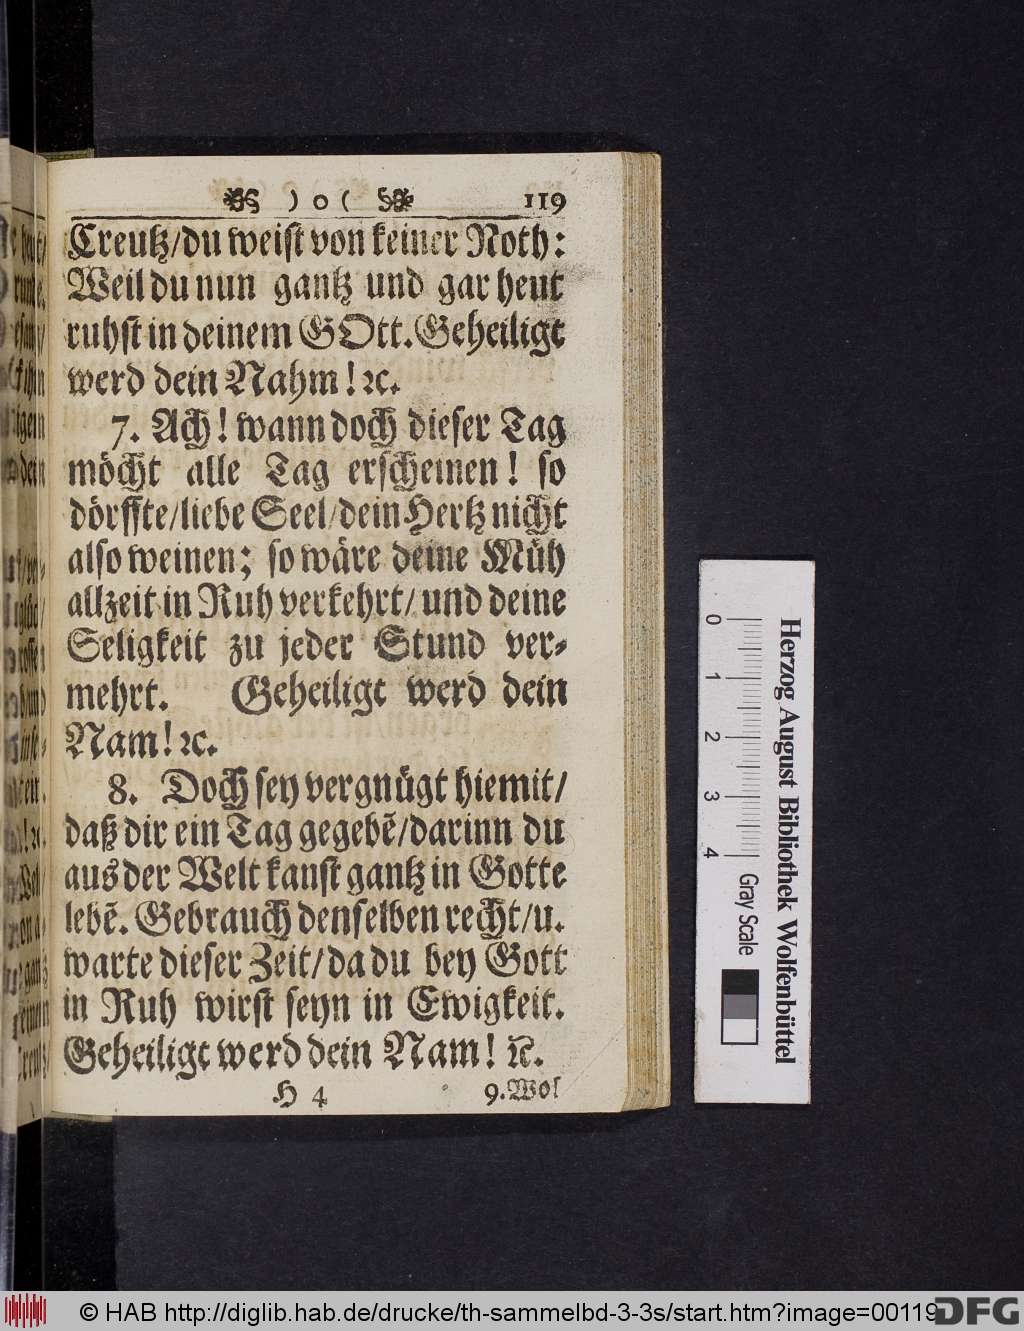 ) o ( 119
Creutz/du weist von keiner Noth:
Weil du nun gantz und gar heut
ruhst in deinem GOtt. Geheiligt
werd dein Nahm! ꝛc.
7. Ach! wann doch dieser Tag
möcht alle Tag erscheinen! so
dörffte/liebe Seel/dein Hertz nicht
also weinen; so wäre deine Müh
allzeit in Ruh verkehrt/ und deine
Seligkeit zu jeder Stund ver-
mehrt. Geheiligt werd dein
Nam! ꝛc.
8. Doch sey vergnügt hiemit/
daß dir ein Tag gegebē/darinn du
aus der Welt kanst gantz in Gotte
lebē. Gebrauch denselben recht/u.
warte dieser Zeit/da du bey Gott
in Ruh wirst seyn in Ewigkeit.
Geheiligt werd dein Nam! ꝛc.
H 4 9. Wol
Herzog August Bibliothek Wolfenbüttel
0 1 2 3 4 Gray Scale
© HAB http://diglib.hab.de/drucke/th-sammelbd-3-3s/start.htm?image=00119
DFG